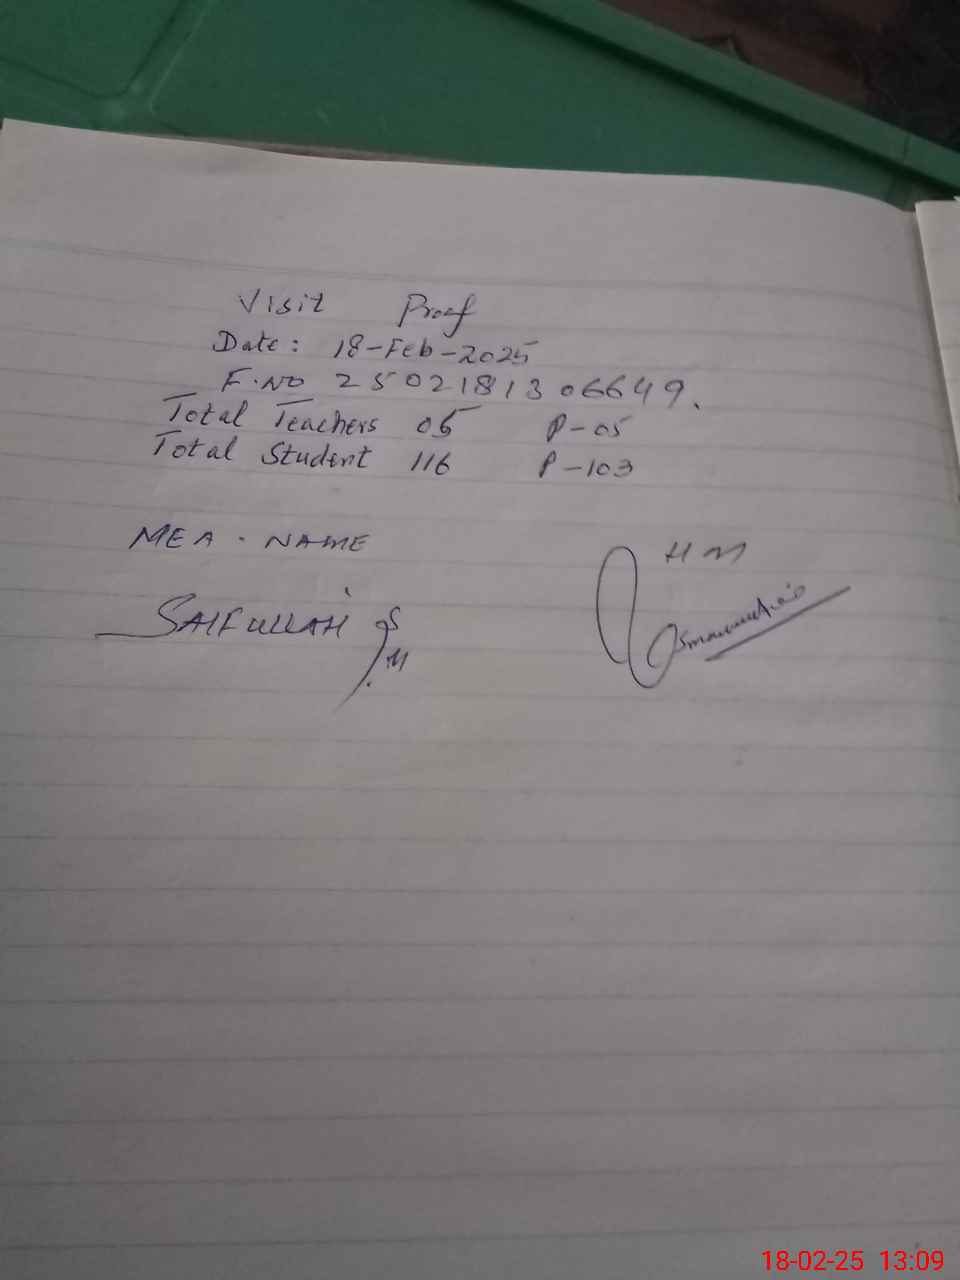 Visit Proof
Date: 18-Feb-2025
F.No 2502181306649.
Total Teachers 05 P-05
Total Student 116 P-103
MEA. NAME
HM
SAIFULLAH
18-02-25 13:09